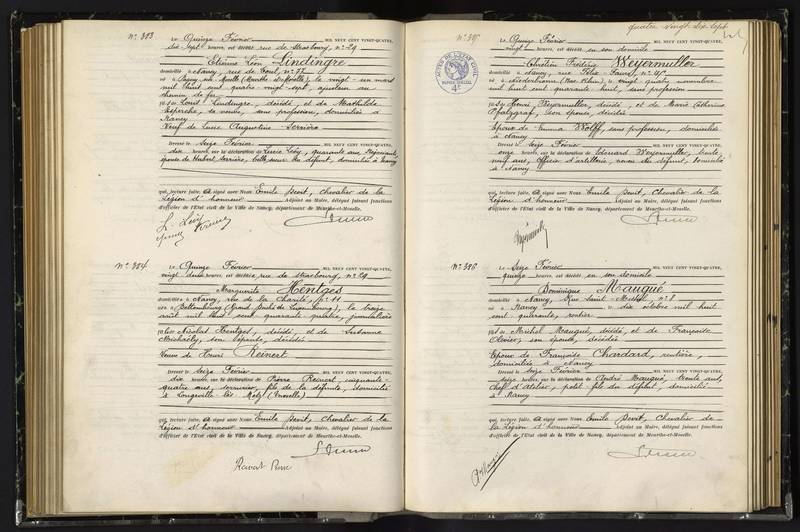 N° 383
Le Quinze Février MIL NEUF CENT VINGT-QUATRE,
dix sept heures, est décédé rue de Strasbourg, n° 29
Etienne Léon Lindingre
domicilié à Nancy, rue de Toul, n° 77
né à Pagny sur Moselle (Meurthe & Moselle), le vingt un mars
mil huit cent quatre vingt sept, ajusteur au
chemin de fer
fils de Louis Lindingre, décédé, et de Mathilde
sa veuve, sans profession, domiciliée à
Nancy
Veuf de Lucie Augustine Serrière
Dressé le Seize Février MIL NEUF CENT VINGT-QUATRE,
heures, sur la déclaration de Lucie Lévy, quarante ans
épouse de Hubert Serrière, belle sœur du défunt, domiciliée à Nancy
qui, lecture faite, a signé avec Nous Emile Devit, Chevalier de la
Légion d'honneur Adjoint au Maire, délégué faisant fonctions
d'officier de l'Etat civil de la Ville de Nancy, département de Meurthe-et-Moselle.
L. Lévy
N° 384
Le Quinze Février MIL NEUF CENT VINGT-QUATRE,
vingt deux heures, est décédée rue de Strasbourg, n° 29
Marguerite Hentges
domiciliée à Nancy, rue de la Charité, n° 11
née à Bettembourg (Grand Duché de Luxembourg), le treize
août mil huit cent quarante quatre, journalière
fille de Nicolas Hentges, décédé, et de Susanne
Michaëly, son épouse, décédée
Veuve de Henri Reinert
Dressé le Seize Février MIL NEUF CENT VINGT-QUATRE,
dix heures, sur la déclaration de Pierre Reinert, cinquante
quatre ans, serrurier, fils de la défunte, domicilié
à Longeville lès Metz (Moselle)
qui, lecture faite, a signé avec Nous Emile Devit, Chevalier de la
Légion d'honneur Adjoint au Maire, délégué faisant fonctions
d'officier de l'Etat civil de la Ville de Nancy, département de Meurthe-et-Moselle.
quatre vingt dix sept
N° 385
Le Quinze Février MIL NEUF CENT VINGT-QUATRE,
vingt heures, est décédé en son domicile
Chrétien Frédéric Weyermuller
domicilié à Nancy, rue Félix Faure, n°
né à Niederbronn (Bas Rhin), le vingt quatre novembre
mil huit cent quarante huit, sans profession
fils de Henri Weyermuller, décédé, et de Marie Catherine
Pfalzgraf, son épouse, décédée
Epoux de Emma Wolff, sans profession, domiciliée
à Nancy
Dressé le Seize Février MIL NEUF CENT VINGT-QUATRE,
onze heures, sur la déclaration de Edouard Weyermuller, trente
neuf ans, Officier d'artillerie, neveu du défunt, domicilié
à Nancy
qui, lecture faite, a signé avec Nous Emile Devit, Chevalier de la
Légion d'honneur Adjoint au Maire, délégué faisant fonctions
d'officier de l'Etat civil de la Ville de Nancy, département de Meurthe-et-Moselle.
N° 386
Le Seize Février MIL NEUF CENT VINGT-QUATRE,
quinze heures, est décédé en son domicile
Dominique Maugué
domicilié à Nancy, Rue Saint-Michel, n° 8
né à Nancy le dix octobre mil huit
cent quarante, rentier
fils de Michel Maugué, décédé, et de Françoise
Olivier, son épouse, décédée
Epoux de Françoise Chardard, rentière,
domiciliée à Nancy
Dressé le Seize Février MIL NEUF CENT VINGT-QUATRE,
seize heures, sur la déclaration de André Maugué, trente ans,
chef d'atelier, petit fils du défunt, domicilié
à Nancy
qui, lecture faite, a signé avec Nous Emile Devit, Chevalier de
la Légion d'honneur Adjoint au Maire, délégué faisant fonctions
d'officier de l'Etat civil de la Ville de Nancy, département de Meurthe-et-Moselle.